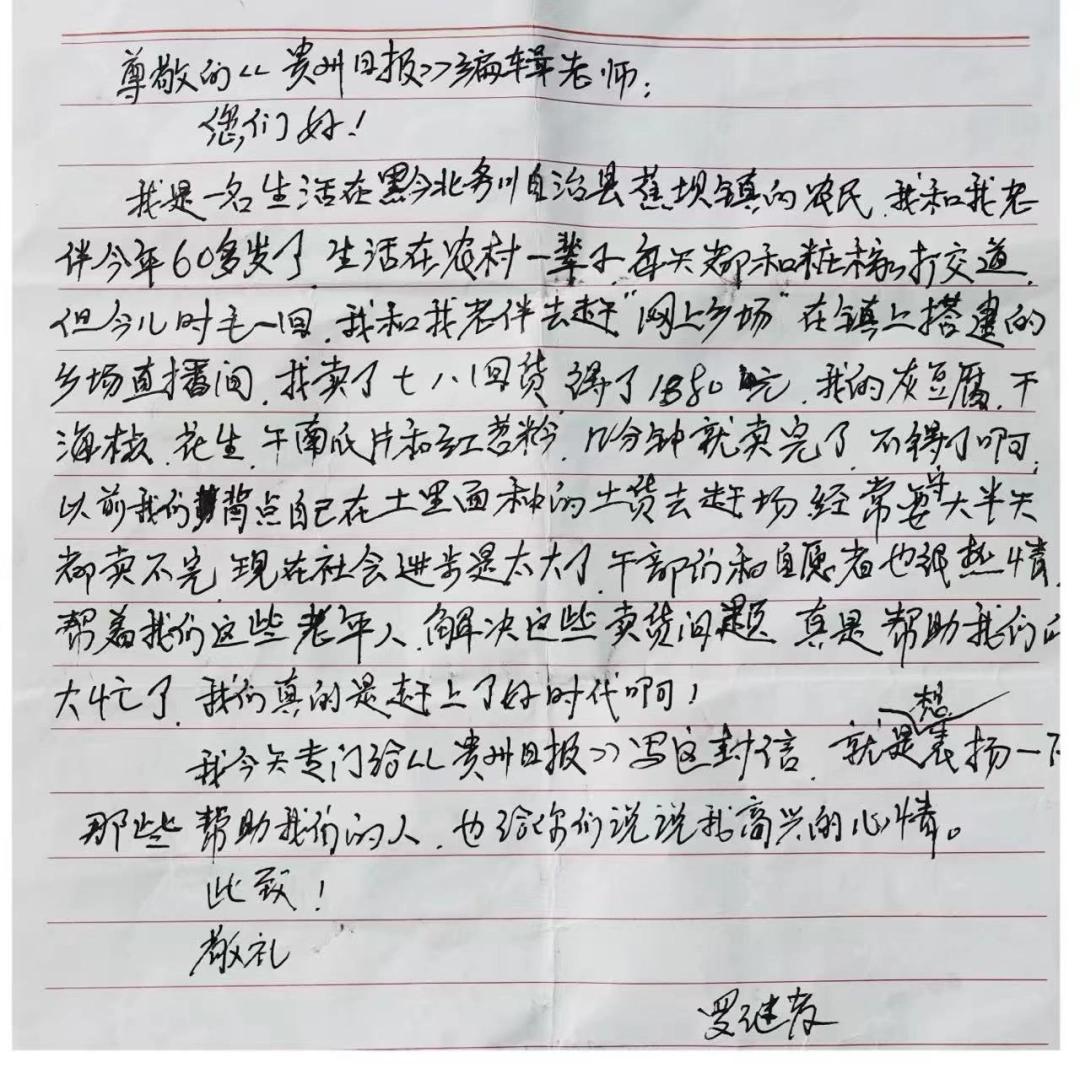 尊敬的《贵州日报》编辑老师：
您们好！
我是一名生活在黔北务川自治县蕉坝镇的农民，我和我老
伴今年60多岁了，生活在农村一辈子，每天都和粧稼打交道，
但今儿时毛一回，我和我老伴去赶“网上乡场”在镇上搭建的
乡场直播间，我卖了七八回货，得了1380元，我的灰豆腐、干
海椒、花生、干南瓜片和红苕粉，几分钟就卖完了，不得了啊，
以前我们背点自己在土里面种的土货去赶场经常要守大半天
都卖不完，现在社会进步是太大了，干部们和自愿者也很热情，
帮着我们这些老年人，解决这些卖货问题，真是帮助我们的
大忙了，我们真的是赶上了好时代啊！
我今天专门给《贵州日报》写这封信，就是想表扬一下
那些帮助我们的人，也给你们说说我高兴的心情。
此致！
敬礼
罗继